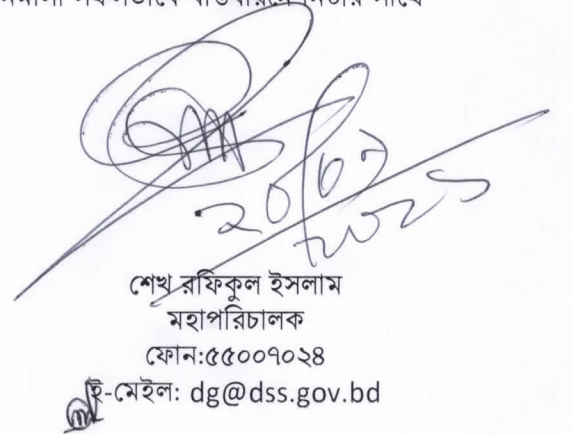 ২০/০২
২০২১
শেখ রফিকুল ইসলাম
মহাপরিচালক
ফোন:৫৫০০৭০২৪
ই-মেইল: dg@dss.gov.bd